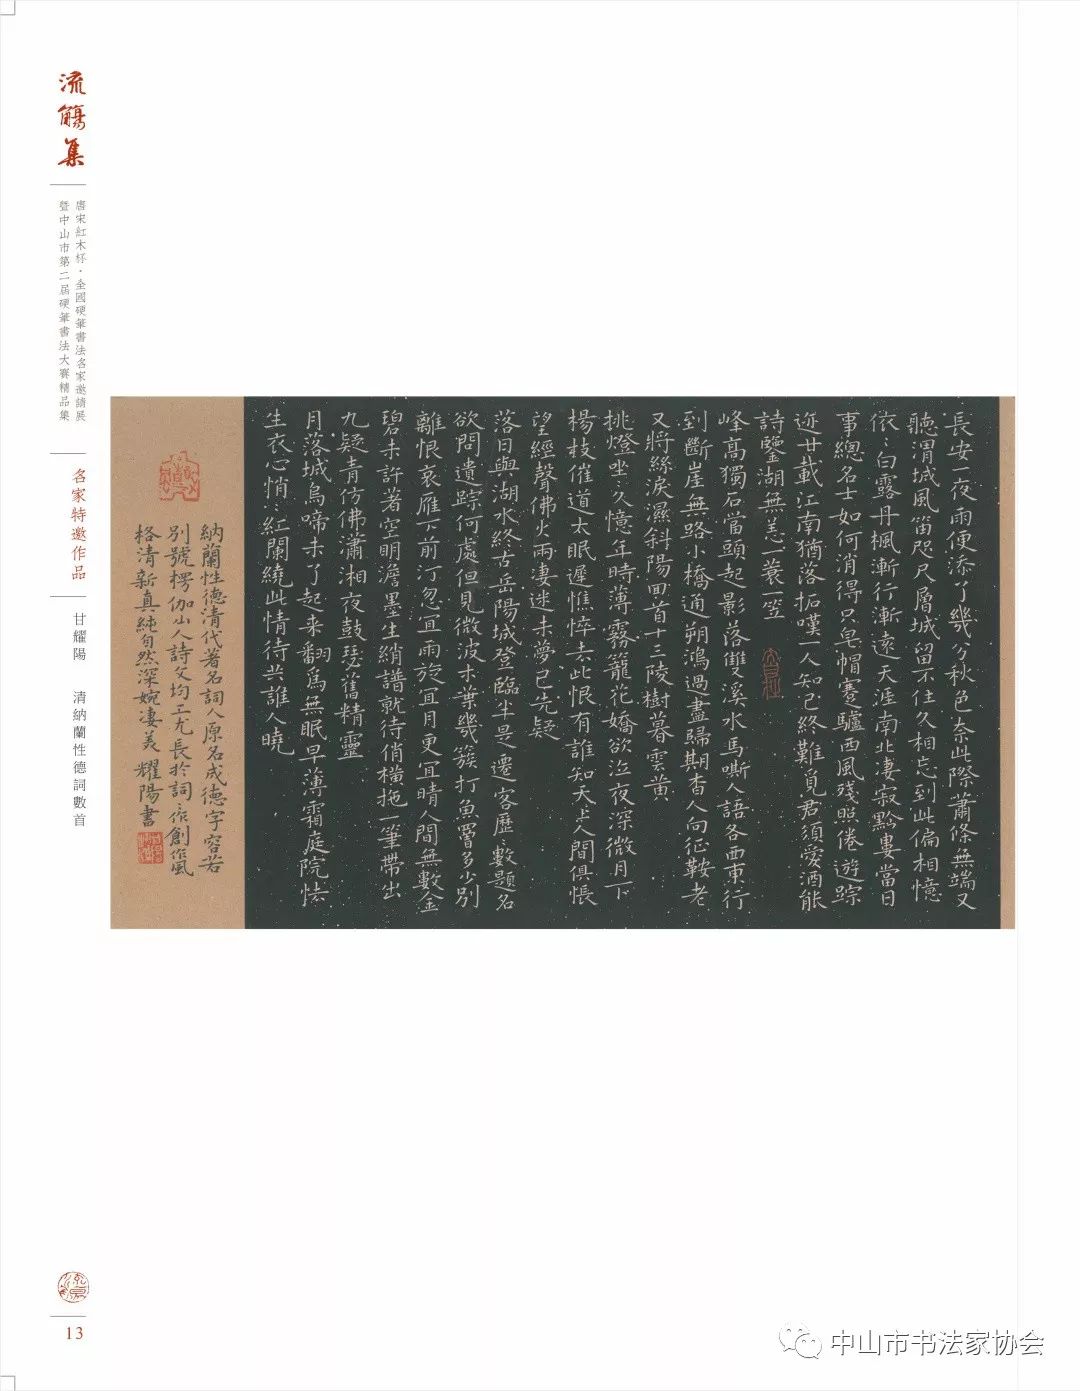 流觴集
唐宋紅木杯·全國硬筆書法名家邀請展
暨中山市第二屆硬筆書法大賽精品集
名家特邀作品
甘耀陽 清納蘭性德詞數首
長安一夜雨便添了幾分秋色奈此際蕭條無端又
聽渭城風笛咫尺層城留不住久相忘到此偏相憶
依〻白露丹楓漸行漸遠天涯南北凄寂黔婁當日
事總名士如何消得只皂帽蹇驢西風殘照倦遊踪
迹廿載江南猶落拓嘆一人知己終難覓君須愛酒能
詩鑒湖無恙一蓑一笠
峰高獨石當頭起影落雙溪水馬嘶人語各西東行
到斷崖無路小橋通朔鴻過盡歸期杳人向征鞍老
又將絲淚濕斜陽回首十三陵樹暮雲黃
挑燈坐久憶年時薄霧籠花嬌欲泣夜深微月下
楊枝催道太眠遲憔悴去此恨有誰知天上人間俱悵
望經聲佛火兩凄迷未夢已先疑
落日與湖水終古岳陽城登臨半是遷客歷數題名
欲問遺踪何處但見微波木葉幾簇打魚罾多少別
離恨哀雁下前汀忽宜雨旋宜月更宜晴人間無數金
碧未許著空明澹墨生綃譜就待俏橫拖一筆帶出
九疑青仿佛瀟湘夜鼓瑟舊精靈
月落城烏啼未了起來翻爲無眠早薄霜庭院怯
生衣心悄〻紅闌繞此情待共誰人曉
納蘭性德清代著名詞人原名成德字容若
別號楞伽山人詩文均工尤長於詞〻作創作風
格清新真純自然深婉凄美 耀陽書
13
中山市书法家协会